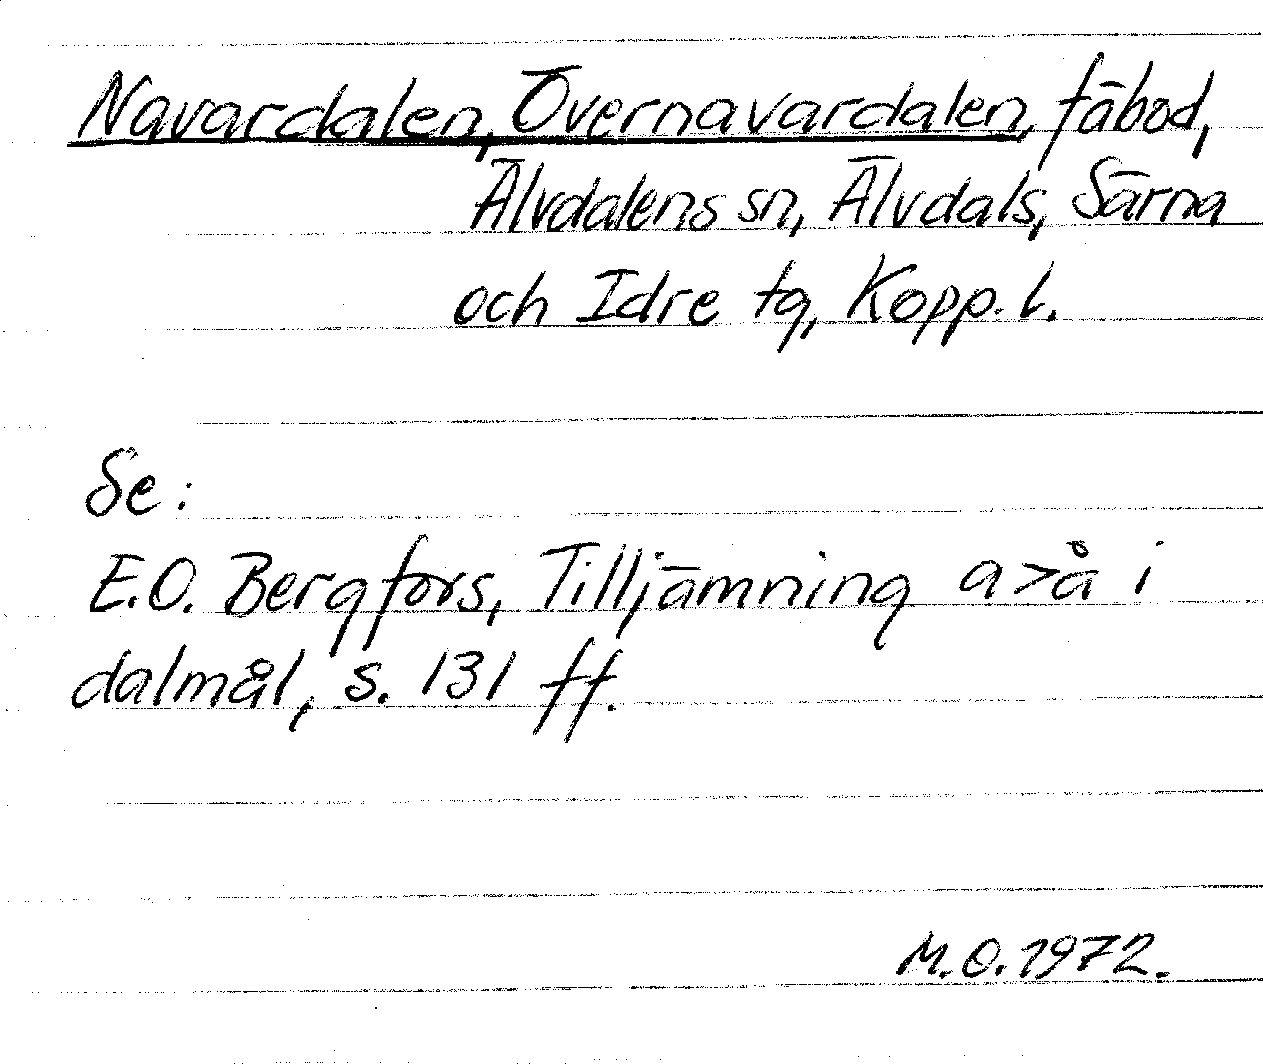 Navardalen, Övernavardalen, fäbod,
Älvdalens sn, Älvdals, Särna
och Idre tg, Kopp. l.
Se:
E.O. Bergfors, Tilljämning a>å i
dalmål, s. 131 ff.
M.O. 1972.